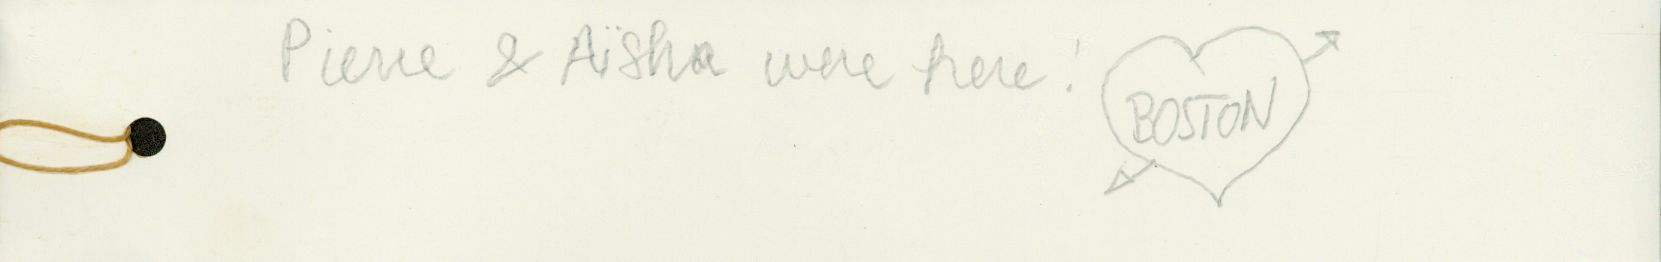 Pierre & Aïsha were here!
BOSTON